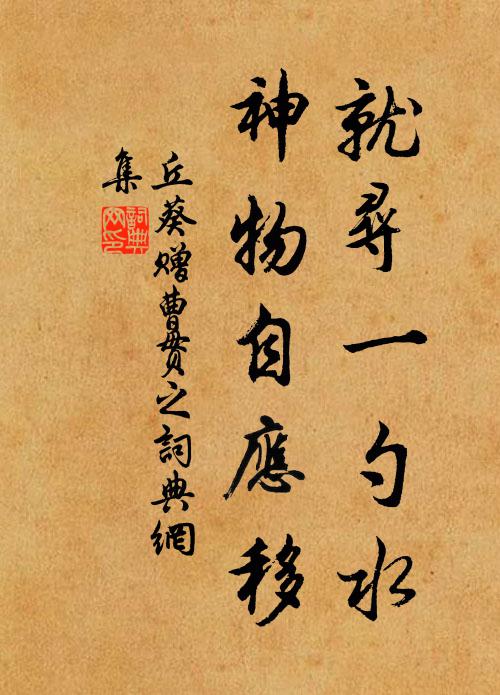 就尋一勺水
神物自應移
丘葵贈曹貫之詞典網
集
詞典網印